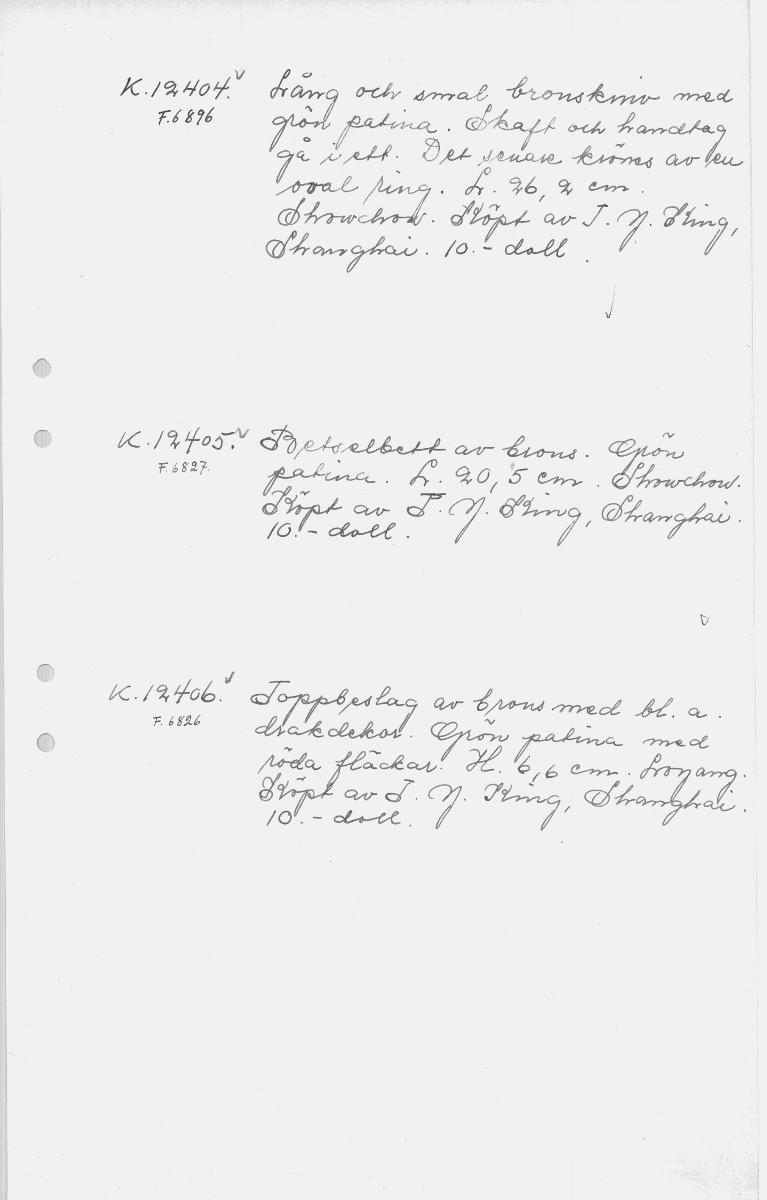 K.12404. Lång och smal bronskniv med
F.6896 grön patina. Skaft och handtag
gå i ett. Det senare krönes av en
oval ring. L. 26,2 cm.
Showchow. Köpt av T. Y. King,
Shanghai. 10.- doll.
K.12405. Betselbett av brons. Grön
F.6827. patina. L. 20,5 cm. Showchow.
Köpt av T. Y. King, Shanghai.
10.- doll.
K.12406. Toppbeslag av brons med bl. a.
F.6826 drakdekor. Grön patina med
röda fläckar. H. 6,6 cm. Loyang.
Köpt av T. Y. King, Shanghai.
10.- doll.